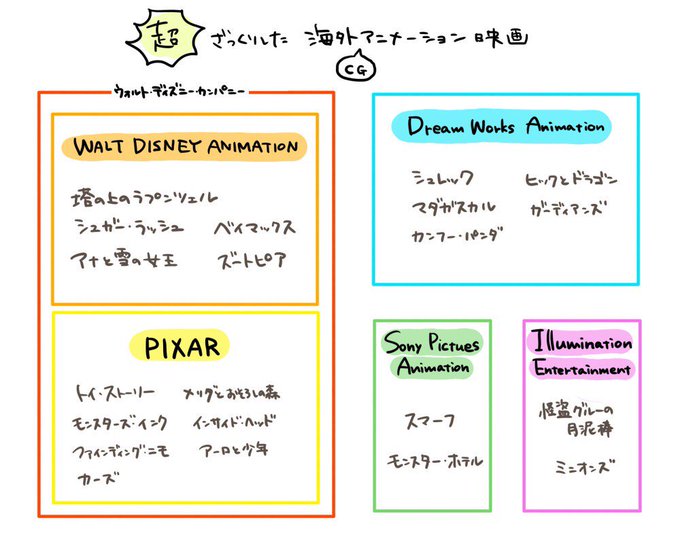 超 ざっくりした 海外アニメーション映画
CG
ウォルト・ディズニー・カンパニー
WALT DISNEY ANIMATION
塔の上のラプンツェル
シュガー・ラッシュ ベイマックス
アナと雪の女王 ズートピア
PIXAR
トイ・ストーリー メリダとおそろしの森
モンスターズ・インク インサイド・ヘッド
ファインディング・ニモ アーロと少年
カーズ
Dream Works Animation
シュレック ヒックとドラゴン
マダガスカル ガーディアンズ
カンフー・パンダ
Sony Pictues
Animation
スマーフ
モンスター・ホテル
Illumination
Entertainment
怪盗グルーの
月泥棒
ミニオンズ